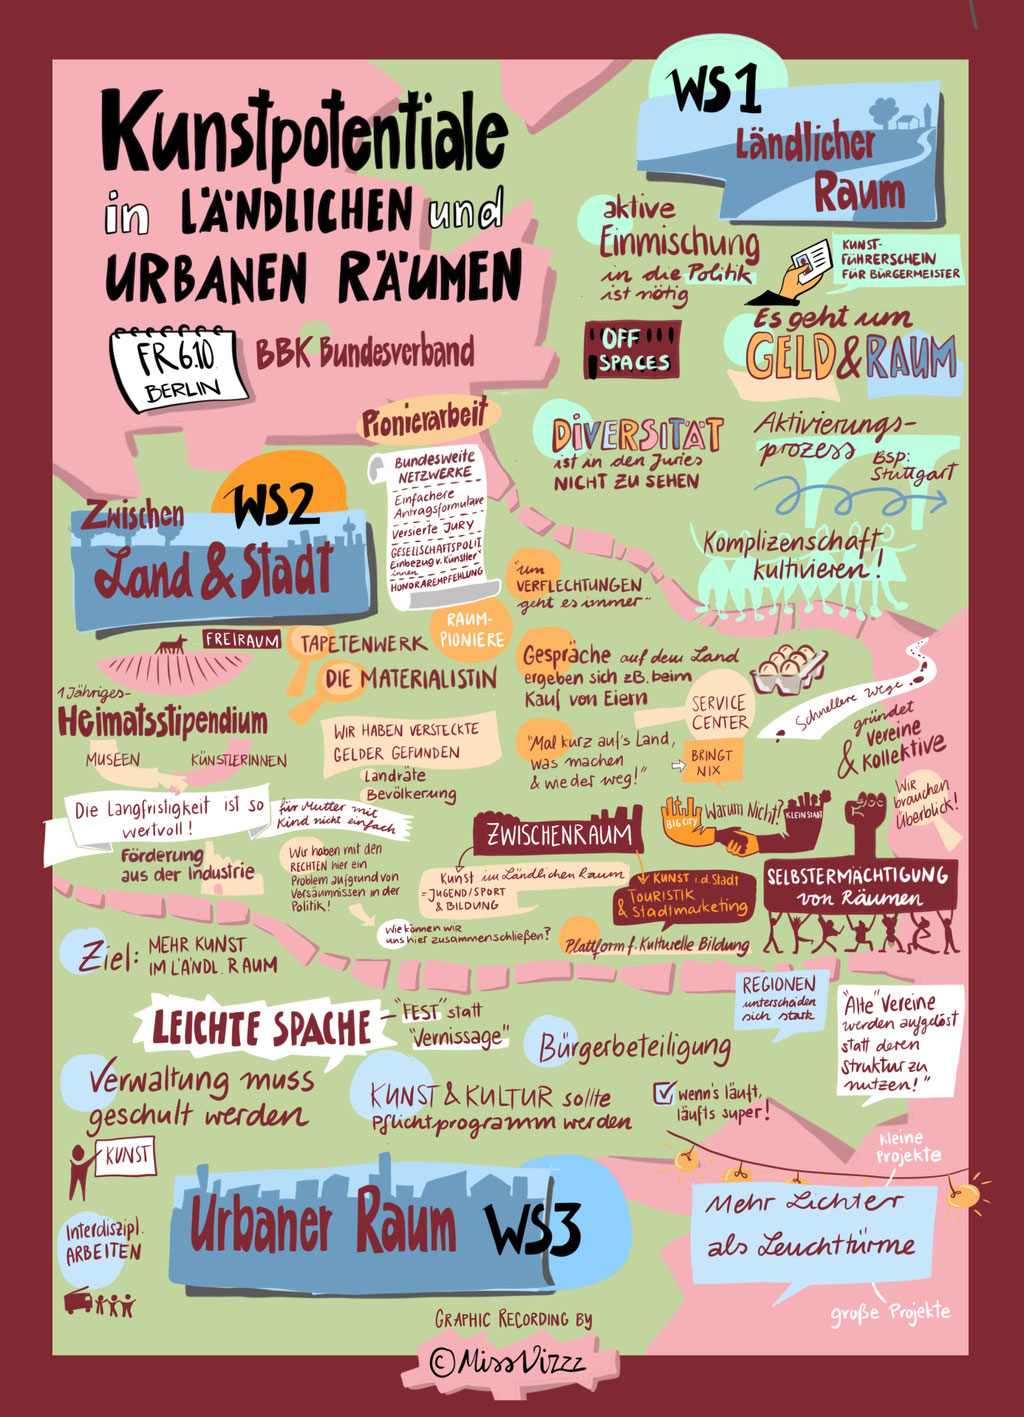 Kunstpotentiale
in LÄNDLICHEN und
URBANEN RÄUMEN
FR 6.10.
BERLIN
BBK Bundesverband
WS1
Ländlicher
Raum
aktive
Einmischung
in die Politik
ist nötig
KUNST-
FÜHRERSCHEIN
FÜR BÜRGERMEISTER
OFF
SPACES
Es geht um
GELD & RAUM
DIVERSITÄT
ist in den Juries
NICHT ZU SEHEN
Aktivierungs-
prozess
Bsp:
Stuttgart
Komplizenschaft
kultivieren!
Pionierarbeit
Bundesweite
NETZWERKE
Einfachere
Antragsformulare
Versierte JURY
GESELLSCHAFTSPOLIT
Einbezug v. Künstler*
innen
HONORAREMPFEHLUNG
WS2
Zwischen
Land & Stadt
"um
VERFLECHTUNGEN
geht es immer"
RAUM-
PIONIERE
FREIRAUM
TAPETENWERK
DIE MATERIALISTIN
1 Jähriges-
Heimatsstipendium
MUSEEN
KÜNSTLERINNEN
WIR HABEN VERSTECKTE
GELDER GEFUNDEN
Landräte
Bevölkerung
Gespräche auf dem Land
ergeben sich zB. beim
Kauf von Eiern
SERVICE
CENTER
"Mal kurz auf's Land,
was machen
& wieder weg!"
BRINGT
NIX
Schnellere Wege
gründet
Vereine
& Kollektive
Wir
brauchen
Überblick!
Die Langfristigkeit ist so
wertvoll!
für Mutter mit
Kind nicht einfach
Förderung
aus der Industrie
Wir haben mit den
RECHTEN hier ein
Problem aufgrund von
Versäumnissen in der
Politik!
Wie können wir
uns hier zusammenschließen?
ZWISCHENRAUM
Kunst im Ländlichen Raum
- JUGEND/SPORT
& BILDUNG
KUNST i.d. Stadt
TOURISTIK
& Stadtmarketing
Plattform f. Kulturelle Bildung
BIG CITY
Warum Nicht?
KLEINSTADT
SELBSTERMÄCHTIGUNG
von RÄUMEN
Ziel: MEHR KUNST
IM LÄNDL. RAUM
LEICHTE SPACHE
- "FEST" statt
"Vernissage"
Bürgerbeteiligung
REGIONEN
unterscheiden
sich stark
"Alte" Vereine
werden aufgelöst
statt deren
Struktur zu
nutzen!"
Verwaltung muss
geschult werden
KUNST & KULTUR sollte
Pflichtprogramm werden
wenn's läuft,
läufts super!
KUNST
Interdiszipl.
ARBEITEN
Urbaner Raum WS3
kleine
Projekte
Mehr Lichter
als Leuchttürme
große Projekte
GRAPHIC RECORDING BY
© MissVizzz